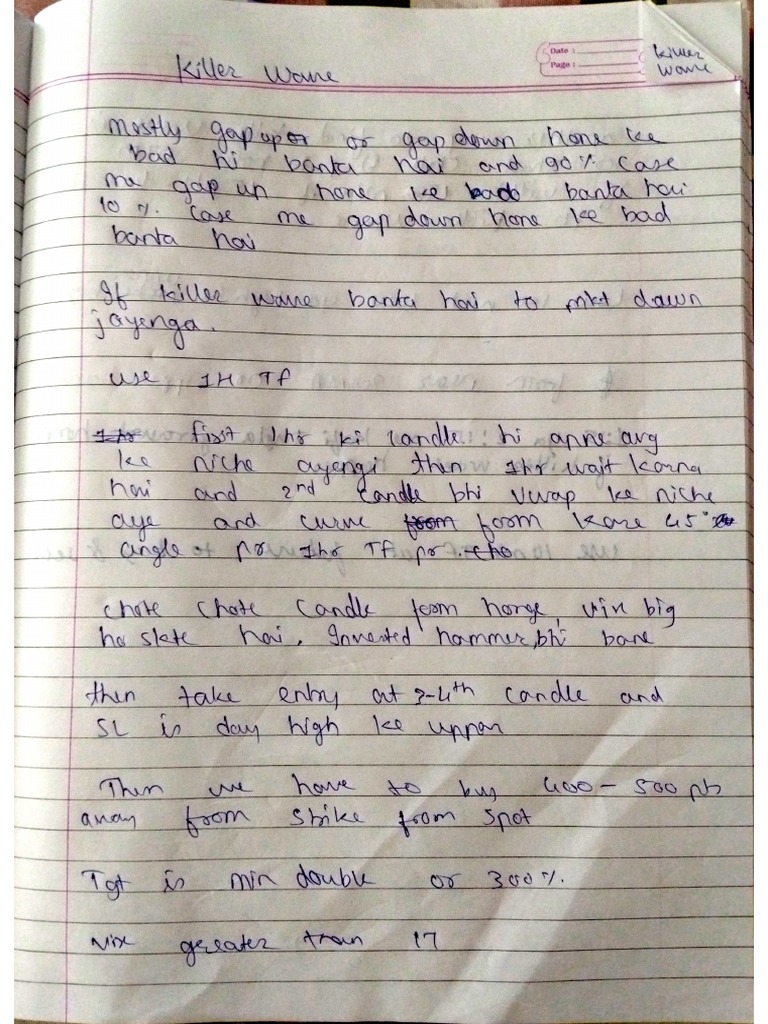 Killer Wave
Date :
Page :
Killer
Wave
Mostly gap up or or gap down hone ke
bad hi banta hai and 90% case
me gap up hone ke bad banta hai
10 % case me gap down hone ke bad
banta hai
If killer wave banta hai to mkt down
jayenga.
use 1H Tf
1hr first 1hr ki candle hi apne avg
ke niche ayengi then 1hr wait karna
hai and 2nd candle bhi vwap ke niche
aye and curve from form kare 45°
angle pr 1hr Tf pr.
chote chote candle form honge, big
ho skte hai. Inverted hammer, bhi bane
then take entry at 3-4th candle and
SL is day high ke uppar
Then we have to buy 400 - 500 pts
away from strike from spot
Tgt is min double or 300%.
Vix greater than 17